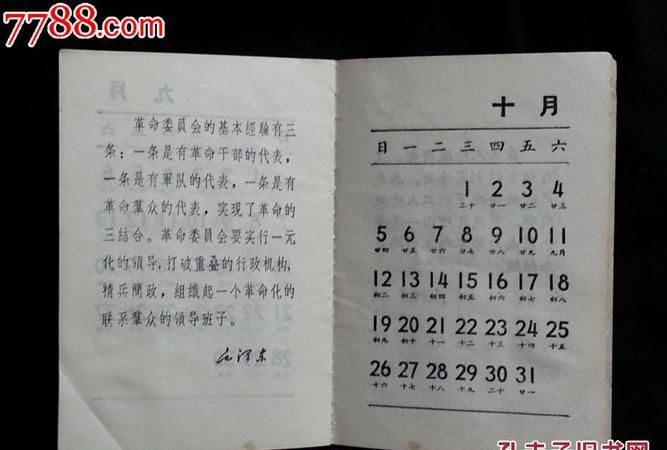 7788.com
革命委員会的基本經驗有三
条：一条是有革命干部的代表，
一条是有軍队的代表，一条是有
革命羣众的代表，实现了革命的
三結合。革命委員会要实行一元
化的領导，打破重叠的行政机构，
精兵簡政，組織起一个革命化的
联系羣众的領导班子。
毛泽东
九月
十月
日 一 二 三 四 五 六
1 2 3 4
二十 廿一 廿二 廿三
5 6 7 8 9 10 11
廿四 廿五 廿六 廿七 廿八 廿九 九月
12 13 14 15 16 17 18
初二 初三 初四 初五 初六 初七 初八
19 20 21 22 23 24 25
初九 初十 十一 十二 十三 十四 十五
26 27 28 29 30 31
十六 十七 十八 十九 二十 廿一
孔夫子旧书网